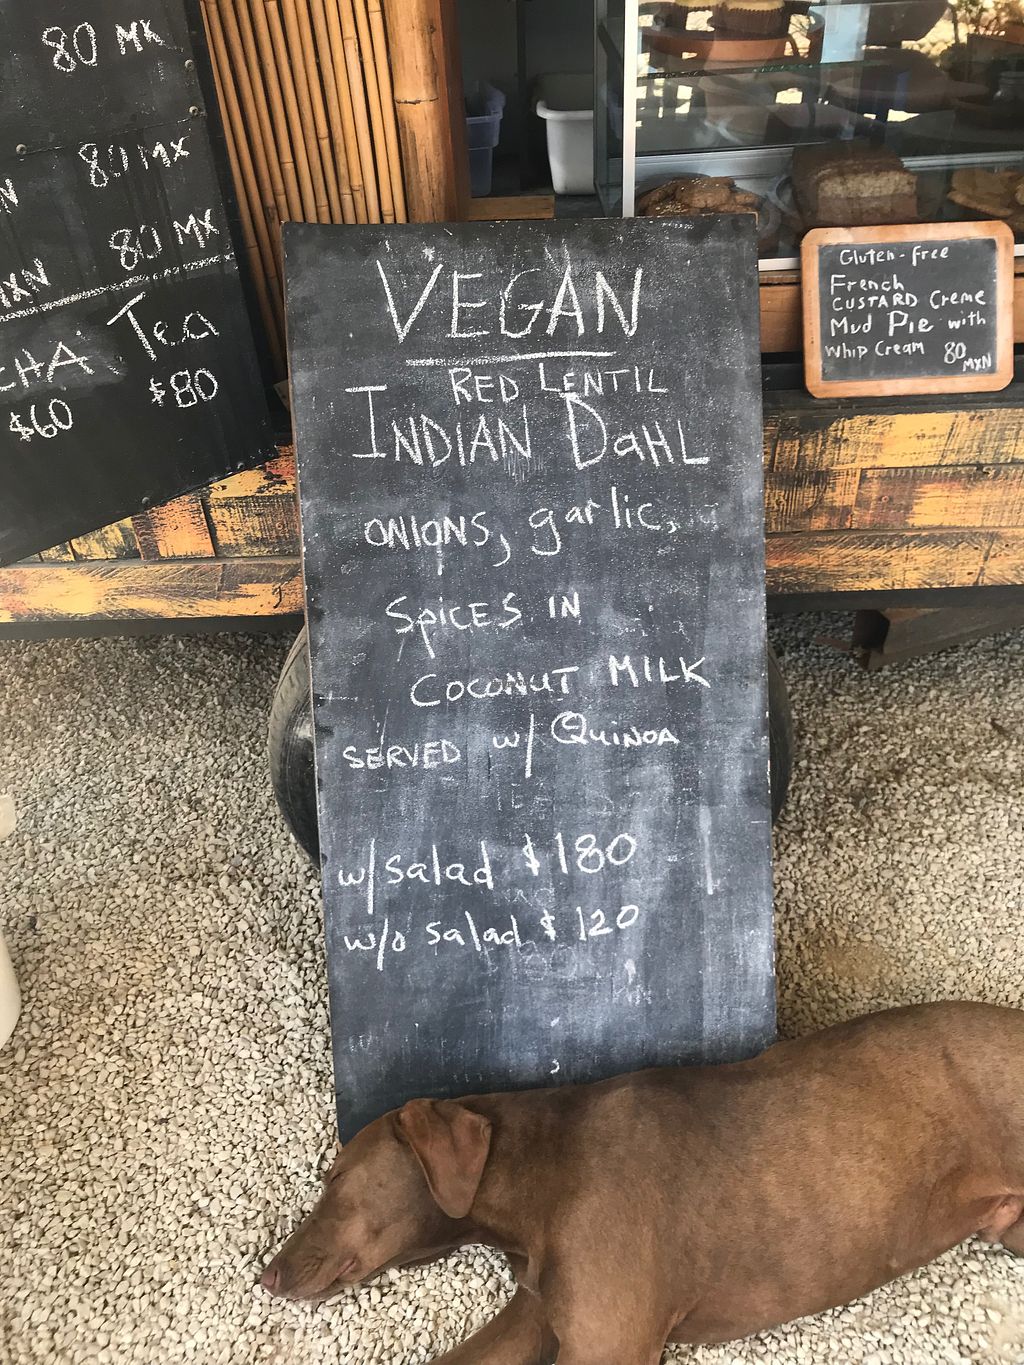 80 MX
80 MX
80 MX
MXN
Tea
$60
$80
VEGAN
RED LENTIL
INDIAN DAHL
ONIONS, garlic,
SPICES IN
COCONUT MILK
SERVED w/ QUINOA
w/salad $180
w/o salad $120
Gluten-free
French
CUSTARD Creme
Mud Pie with
whip Cream 80
MXN